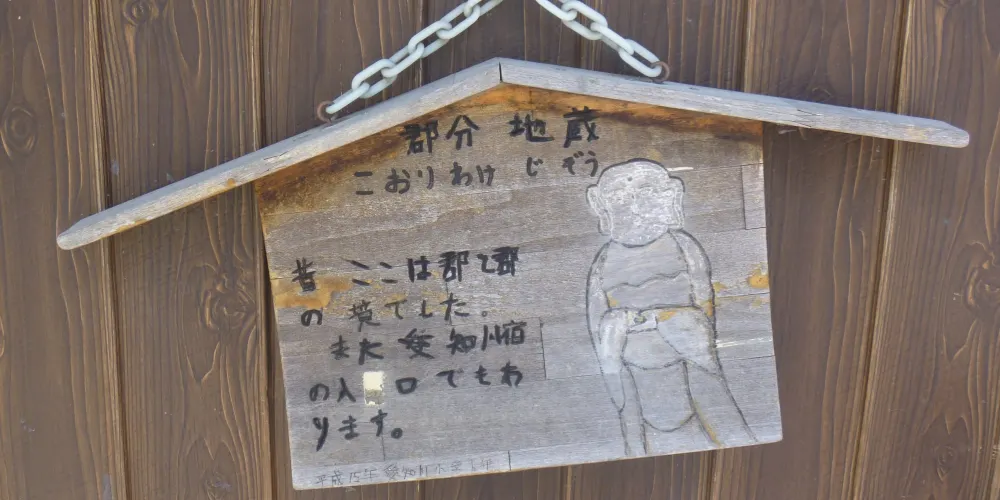 郡分 地蔵
こおりわけ じぞう
昔 ここは郡と郡
の 境でした。
また 愛知川宿
の入 口 でもあ
ります。
平成15年 愛知川小